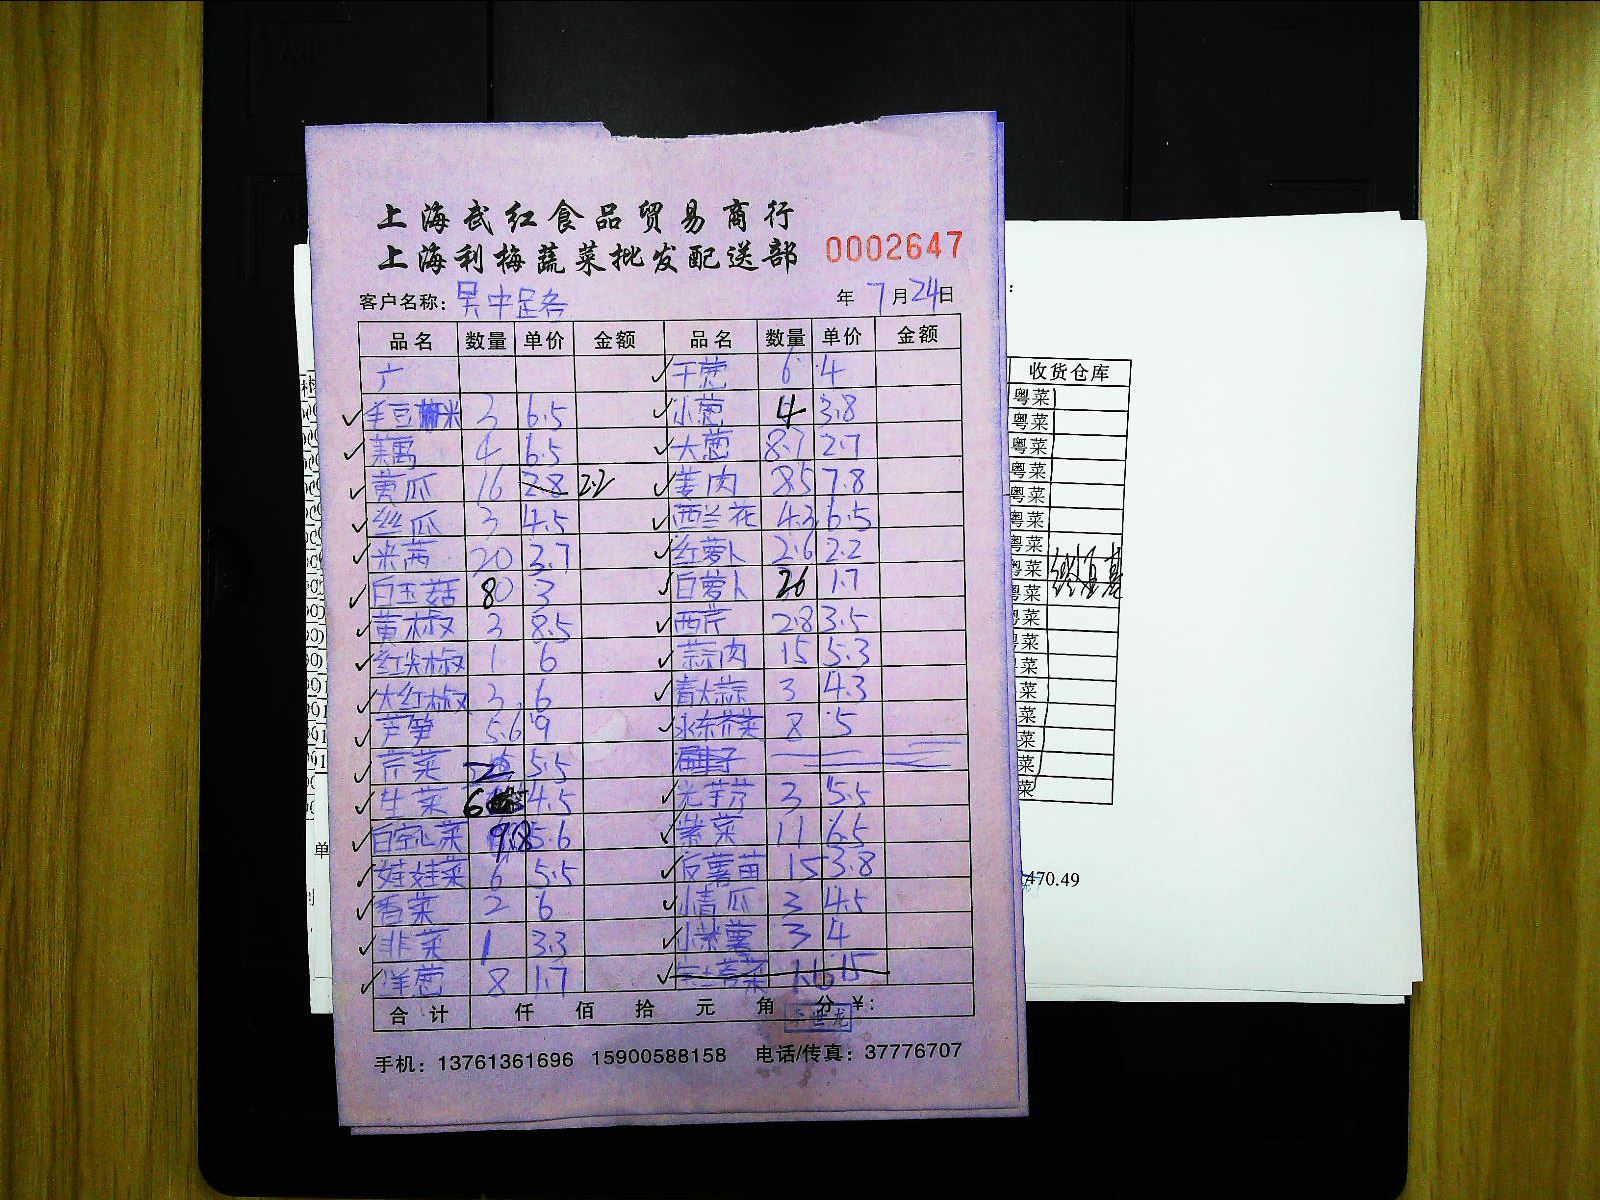 上海武红食品贸易商行
上海利梅蔬菜批发配送部 0002647
客户名称: 吴中 年 7月24日
品名 数量 单价 金额 品名 数量 单价 金额
广 干葱 6 4
毛豆米 3 6.5 小葱 4 3.8
莲藕 4 6.5 大葱 8.7 2.7
黄瓜 16 2.8 2.2 姜肉 8.5 7.8
丝瓜 3 4.5 西兰花 4.3 6.5
米茜 20 3.7 红萝卜 2.6 2.2
白玉菇 80 3 白萝卜 26 1.7
黄椒 3 8.5 西芹 2.8 3.5
红尖椒 1 6 蒜肉 15 5.3
大红椒 3 6 青大蒜 3 4.3
芦笋 5.6 9 水东芥菜 8 5
芹菜 5.5
生菜 6 4.5 光芋艿 3 5.5
白空心菜 9.8 5.6 紫菜 11 6.5
娃娃菜 6 5.5 反薯苗 15 3.8
香菜 2 6 小青瓜 3 4.5
韭菜 1 3.3 小米薯 3 4
洋葱 8 1.7
合计 仟 佰 拾 元 角 分 ¥:
李世龙
手机: 13761361696 15900588158 电话/传真: 37776707
收货仓库
粤菜
粤菜
粤菜
粤菜
粤菜
粤菜
粤菜
粤菜
粤菜
粤菜
粤菜
粤菜
菜
菜
菜
菜
菜
单
470.49